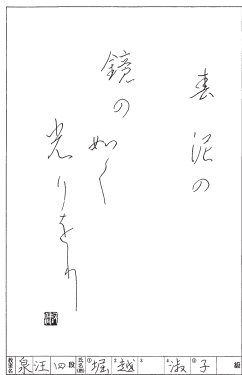 春泥の
鏡の如く
光りをり
教室名 泉汪 四段 氏名(号) ①堀 ②越 ③ ④淑 ⑤子 級